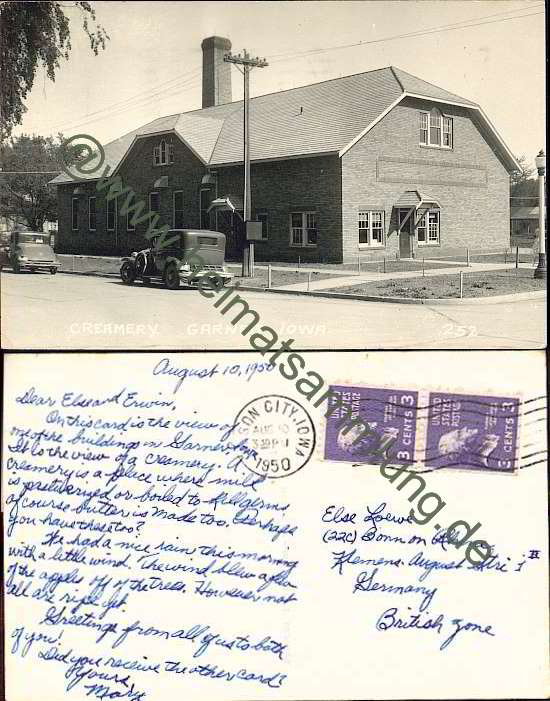 CREAMERY GARNER IOWA 252
© heimatsammlung.de
August 10, 1950
Dear Else and Erwin,
On this card is the view of
one of the buildings in Garner Iowa
It is the view of a creamery. A
creamery is a place where milk
is pasteurized or boiled to kill germs
of course butter is made too. Perhaps
you have these too?
We had a nice rain this morning
with a little wind. The wind blew a few
of the apples off of the trees. However not
all are ripe yet.
Greetings from all of us to both
of you!
Did you receive the other card?
Yours,
Mary
SON CITY, IOWA
AUG 10
3 30 PM
1950
UNITED STATES POSTAGE 3 CENTS 3
UNITED STATES POSTAGE 3 CENTS 3
Else Loewe
(22C) Bonn on
Klemens. August Str. 1 II
Germany
British zone